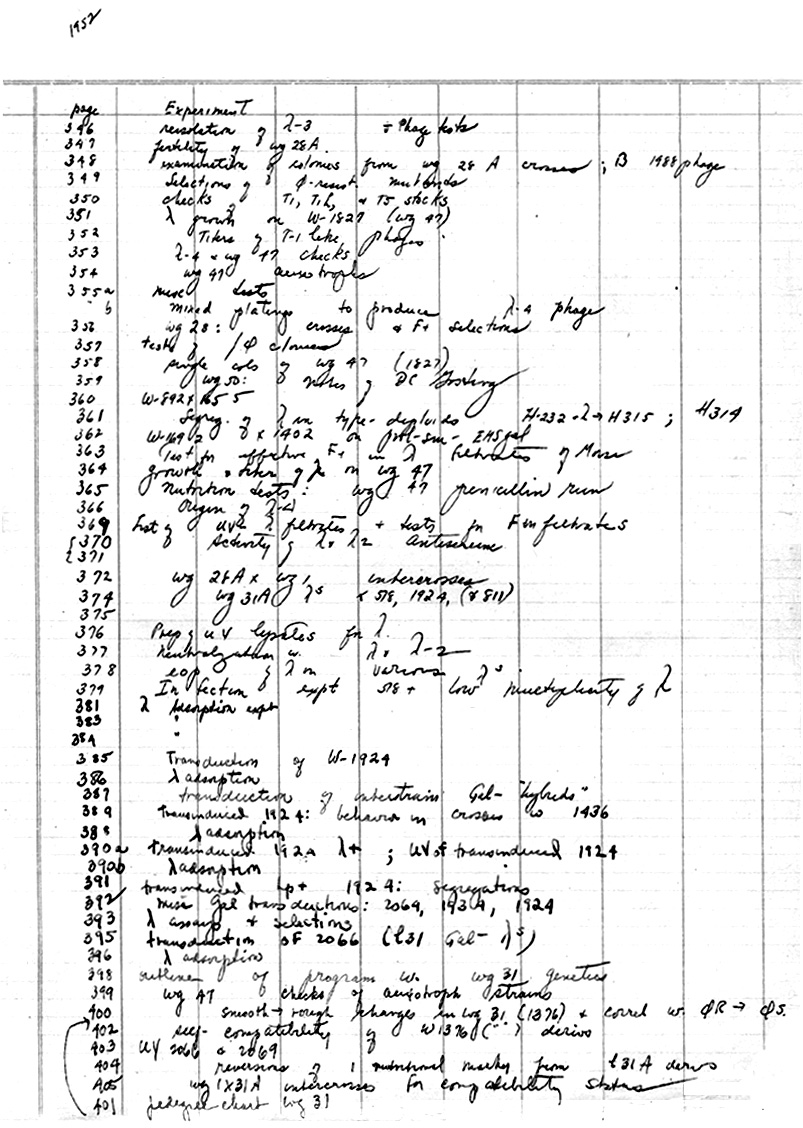 1952
page Experiment
346 resolution of λ-3 + Phage tests
347 fertility of wg 28A.
348 examination of colonies from wg 28 A crosses ; B 1988 phage
349 Selections of φ-resist. mutants
350 checks of T1, T1h, & T5 stocks
351 λ growth on W-1827 (wg 47)
352 Titers of T-1 like phages
353 λ-4 & wg 47 checks
354 wg 47 auxotrophs
355a misc tests
b mixed platings to produce λ-4 phage
356 wg 28: crosses & F+ selections
357 tests of /φ
358 single cols of wg 47 (1827)
359 wg 50: notes of DC
360 W-892 x 1655
361 Segreg. of λ in type-diploids H-232-λ → H315 ; H314
362 W-1692 x 1402 on EMS gal
363 Test for effective F+ in λ filtrates of Morse
364 growth & titer of on wg 47
365 Nutrition tests: wg 47 penicillin run
366 Origin of λ-4
369 Test of UV λ filtrates + tests for F in filtrates
370 Activity of λ & λ2 Antiserum
371
372 wg 28A x wg 1 intercrosses
374 wg 31A λs x 518, 1924, (& 811)
375
376 Prep of UV lysates for λ.
377 Neutralization w. λ & λ-2
378 eop of λ on various λs
379 Infection expt 518 + low multiplicity of λ
381 λ Adsorption expt
383 "
384 "
385 Transduction of W-1924
386 λ adsorption
387 transduction of interstrain Gal- "hybrids"
389 transinduced 1924: behavior in crosses to 1436
388 λ adsorption
390a transinduced 1924 λ+ ; UV of transinduced 1924
390b λ adsorption
391 transinduced Lp+ 1924: segregations
392 misc Gal transductions: 2069, 1934, 1924
393 λ assays + selections
395 transduction of 2066 (t31 Gal- λs)
396 λ adsorption
398 outline of program w. wg 31 genetics
399 wg 47 checks of auxotroph strains
400 smooth → rough changes in wg 31 (1376) & correl w. φR → φS.
402 self-compatibility of W1376 (" ") derivs
403 UV 2066 & 2069
404 reversions of 1 nutritional marker from t31A derivs
405 wg 1x31A intercrosses for compatibility status
401 pedigree chart wg 31